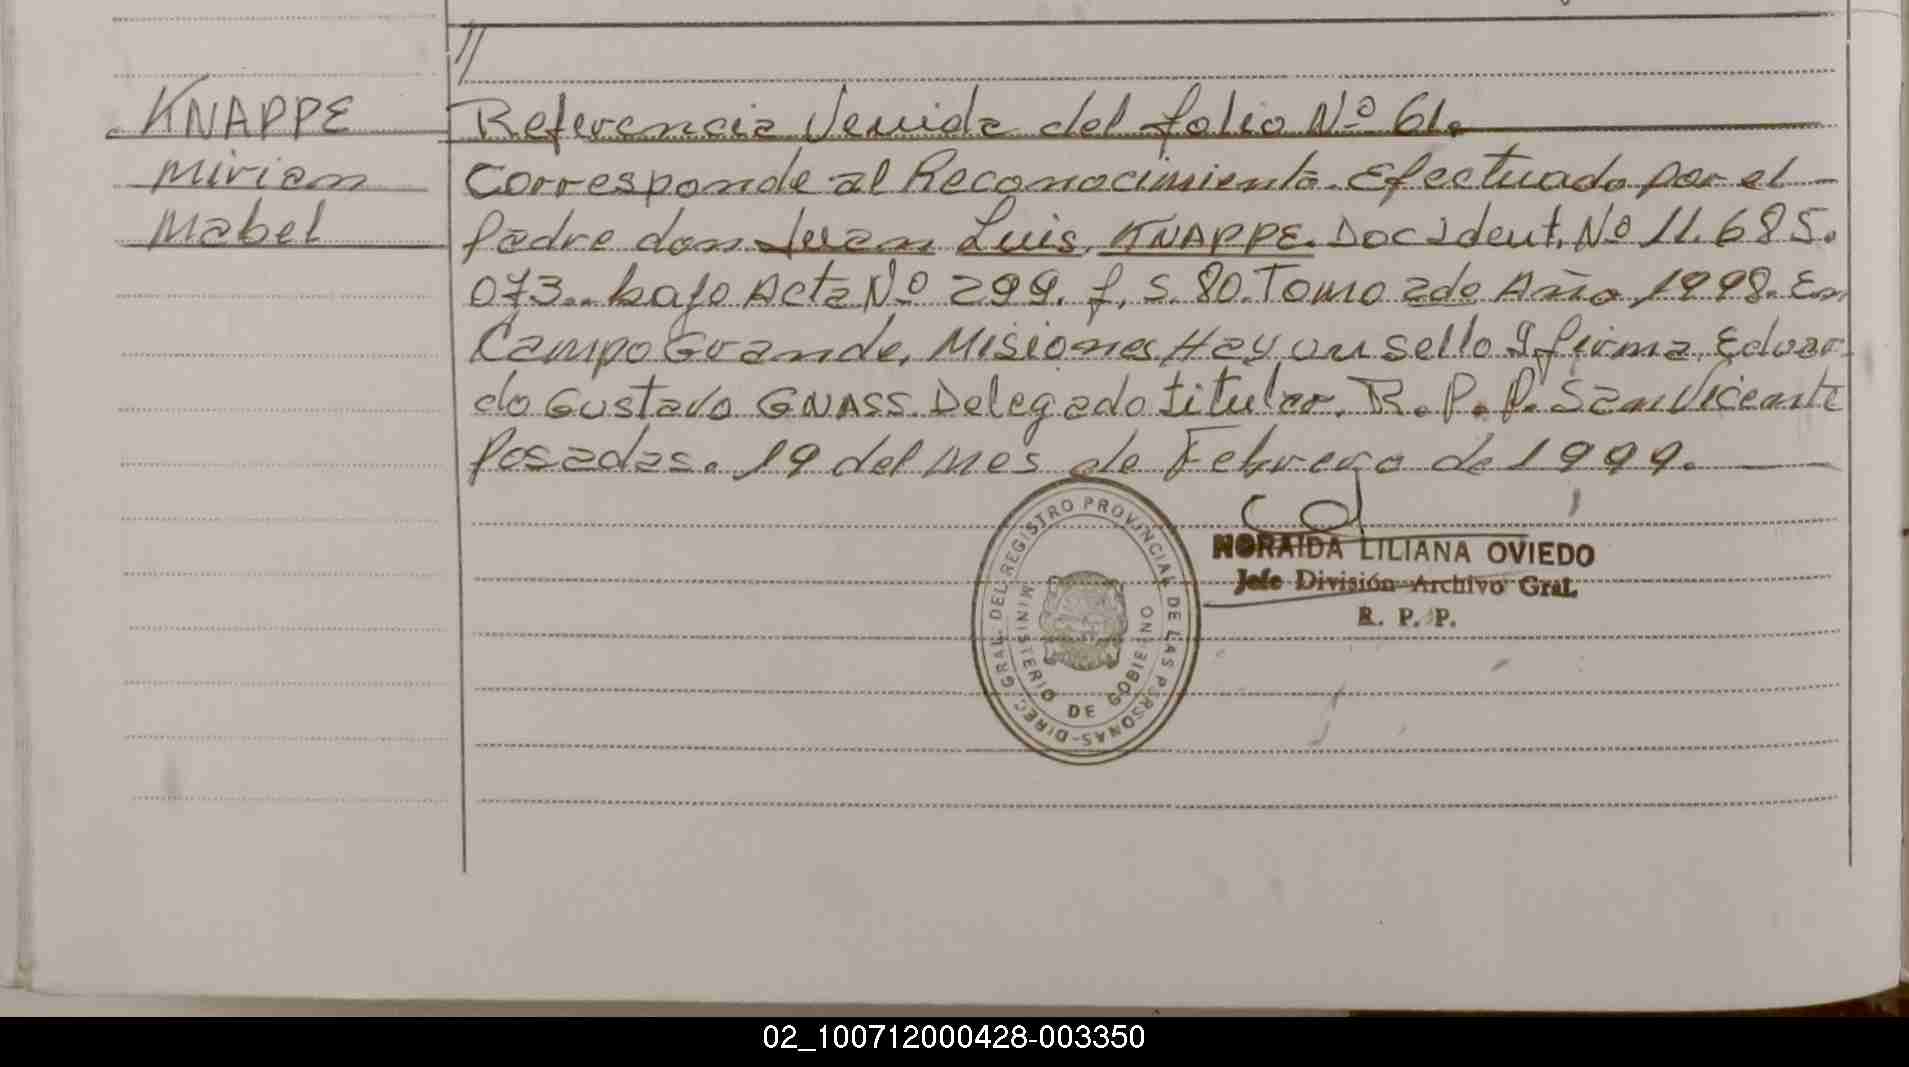 //
KNAPPE
Miriam
Mabel
Referencia Venida del folio Nº 61.
Corresponde al Reconocimiento. Efectuado por el
padre don Juan Luis. KNAPPE. Doc Ident. Nº 11.685.
073.. bajo Acta Nº 299. f. s. 80. Tomo 2do Año 1998. En
Campo Grande, Misiones Hay un sello y firma. Eduar
do Gustavo GNASS. Delegado titular. R. P. P. San Vicente
Posadas. 19 del mes de Febrero de 1999.
NORAIDA LILIANA OVIEDO
Jefe División Archivo Gral.
R. P. P.
DIREC. GRAL. DEL REGISTRO PROVINCIAL DE LAS PERSONAS-
MINISTERIO DE GOBIERNO
02_100712000428-003350